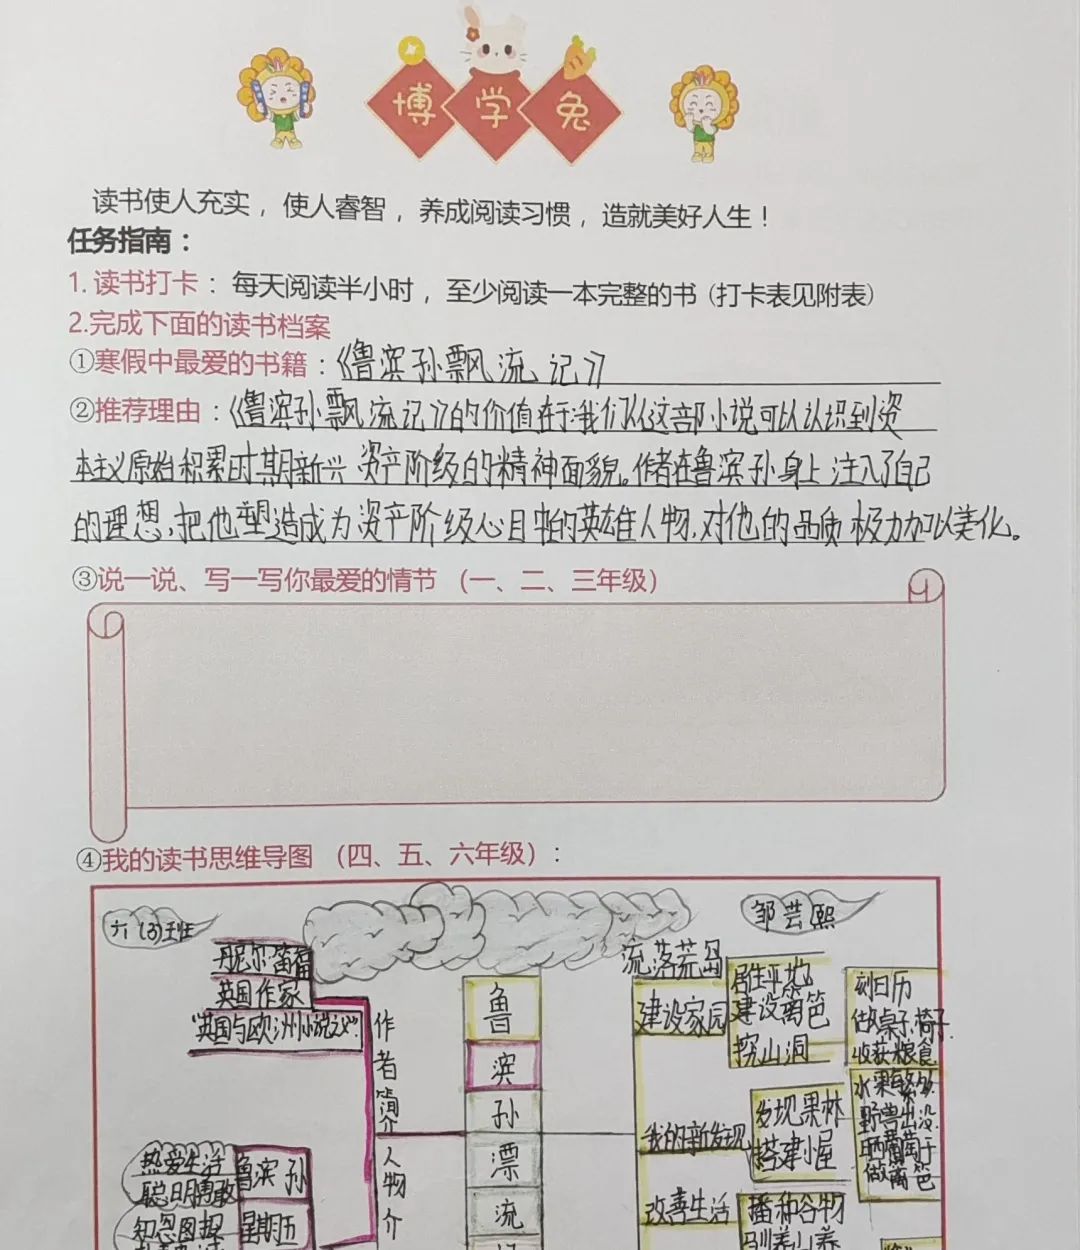 博学兔
读书使人充实，使人睿智，养成阅读习惯，造就美好人生！
任务指南：
1. 读书打卡：每天阅读半小时，至少阅读一本完整的书（打卡表见附表）
2.完成下面的读书档案
①寒假中最爱的书籍：《鲁滨孙飘流记》
②推荐理由：《鲁滨孙飘流记》的价值在于:我们从这部小说可以认识到资
本主义原始积累时期新兴资产阶级的精神面貌。作者在鲁滨孙身上注入了自己
的理想,把他塑造成为资产阶级心目中的英雄人物,对他的品质极力加以美化。
③说一说、写一写你最爱的情节（一、二、三年级）
④我的读书思维导图（四、五、六年级）：
六(3)班
邹芸熙
丹尼尔·笛福
英国作家
"英国与欧洲小说之父"
作者简介
人物介
热爱生活
聪明勇敢
鲁滨孙
知恩图报
星期五
鲁
滨
孙
漂
流
流落荒岛
建设家园
建设篱笆
挖山洞
刻日历
做桌子,椅子
收获粮食
我的新发现
发现果林
搭建小屋
水果繁多
野兽出没
晒葡萄干
做篱笆
改善生活
播种谷物